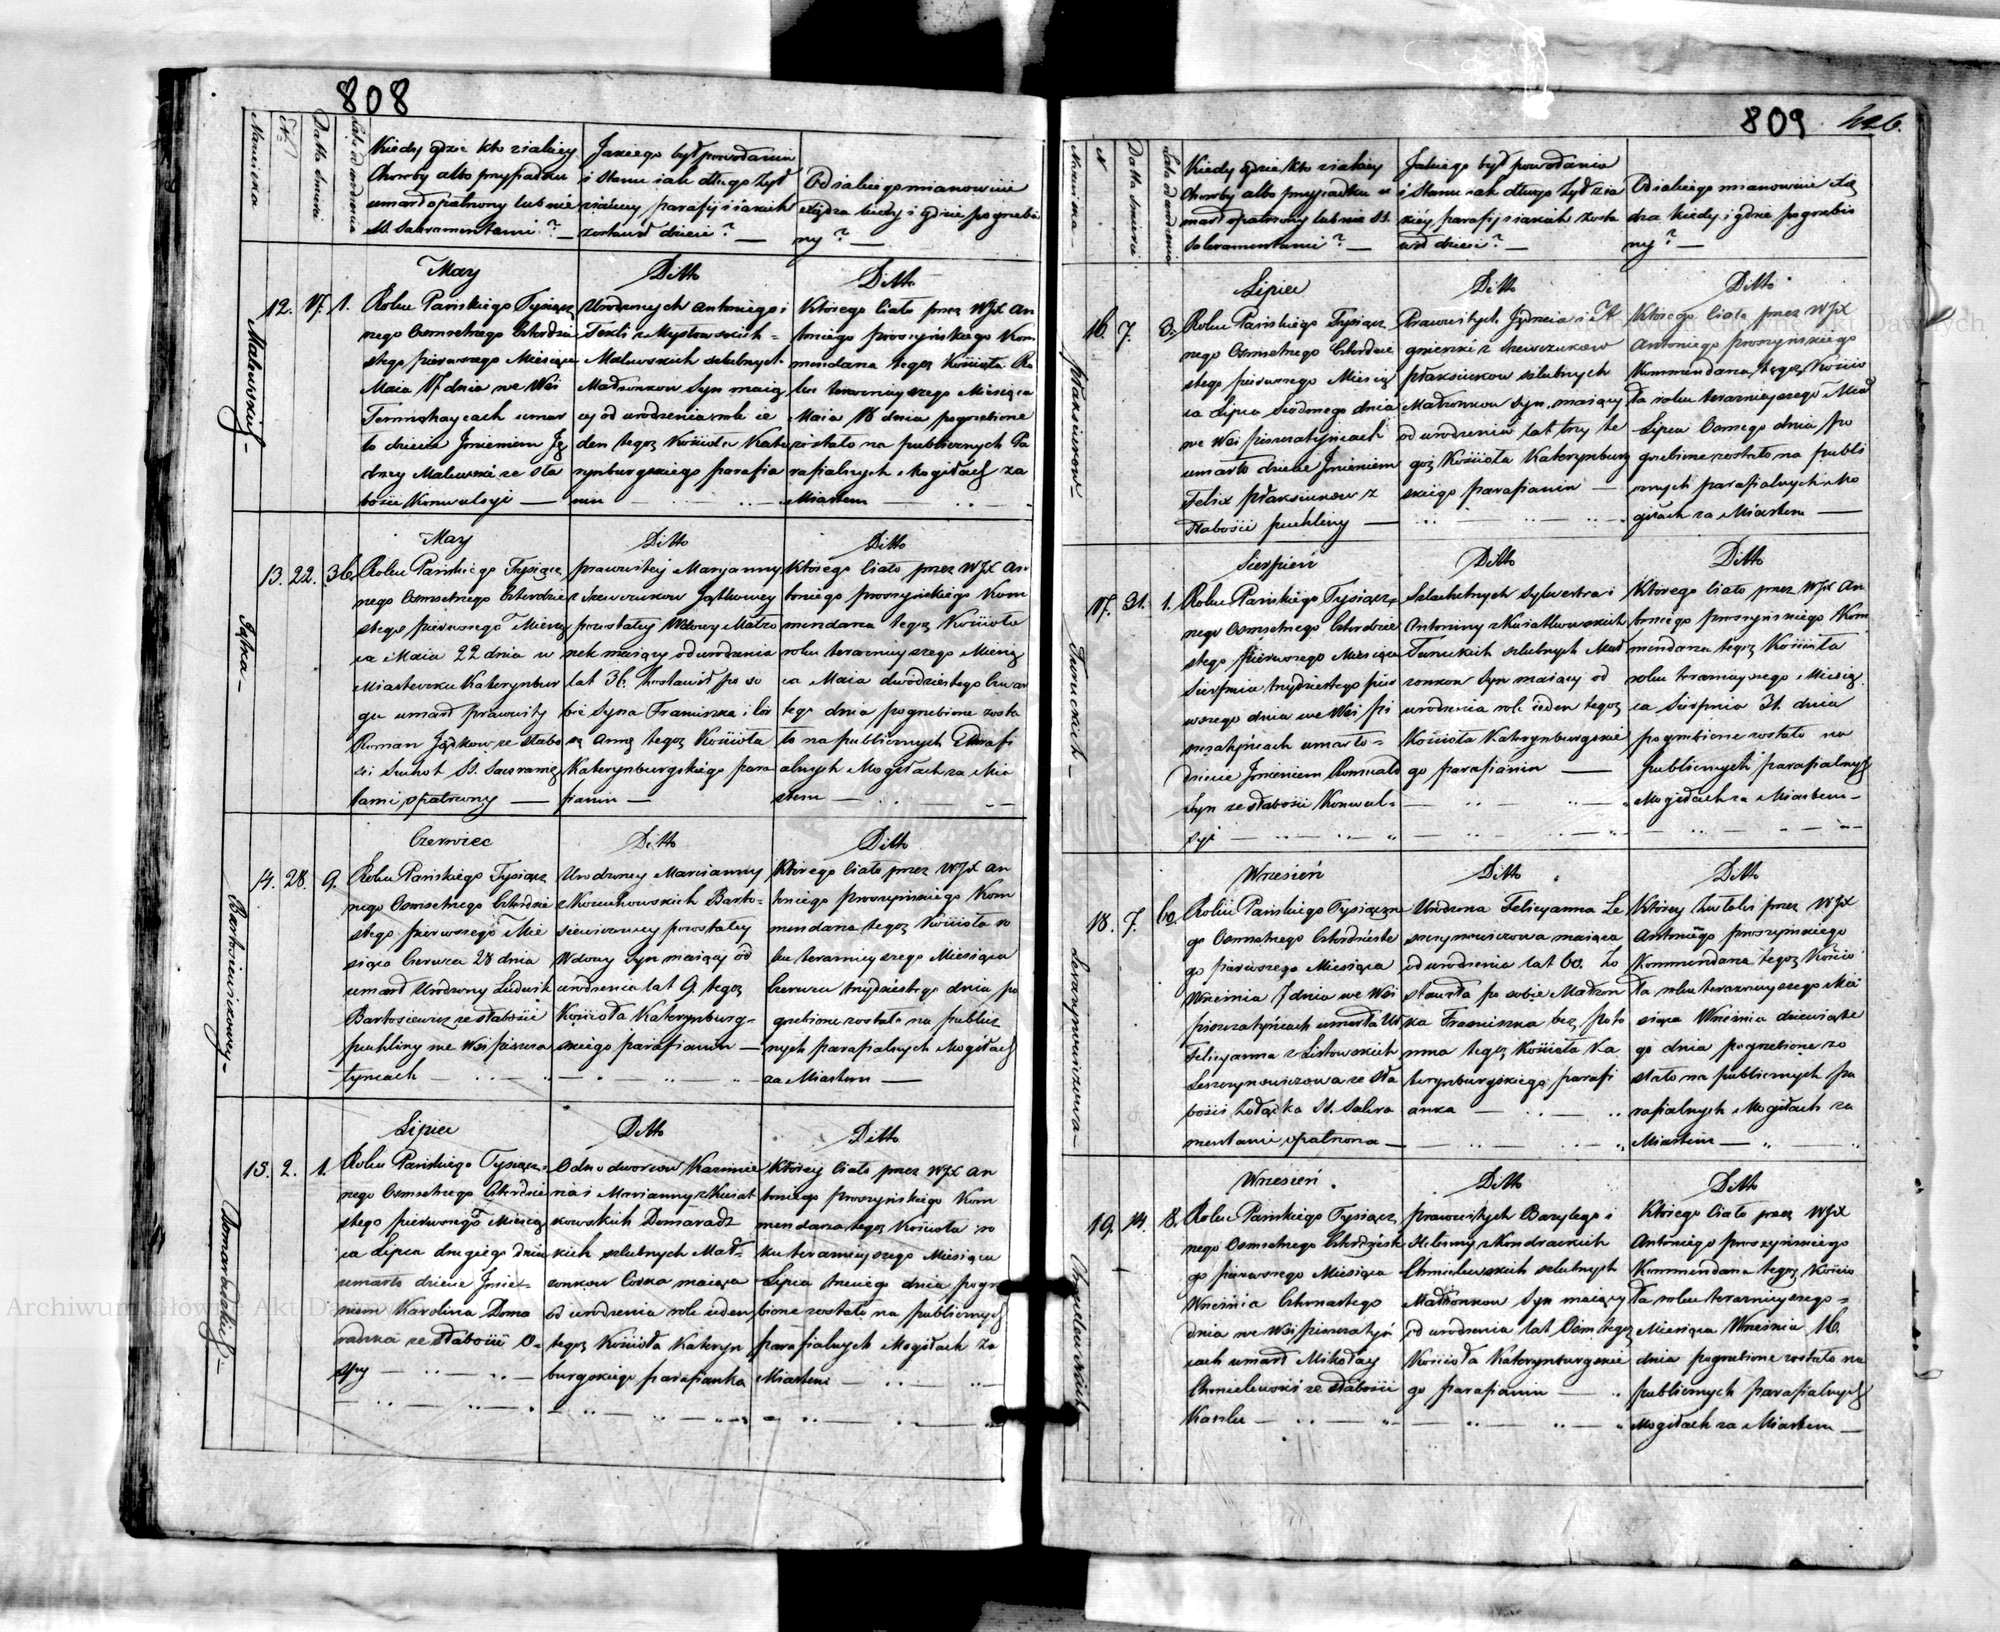 808
Nazwiska
N.
Datta śmierci
Lata od urodzenia
Kiedy gdzie kto z iakiey
Choroby albo przypadku
umarł opatrzony lub nie
SS. Sakramentami? —
Jakiego był powołania
i stanu iak długo żył
z iakiey parafij i iakich
zostawił dzieci? —
Od iakiego mianowicie
Xiędza kiedy i gdzie pogrzebio
ny? —
Malewskij —
12. 17. 1.
May
Roku Pańskiego Tysiącz
nego Osmsetnego Czterdzie
stego pierwszego Miesiąca
Maia 17 dnia we Wsi
umar
ło dziecie Jmieniem Ję
drzey Malewski ze sła
bości Konwulsyi —
Ditto
Urodzonych Antoniego i
Tekli z Mysłowskich =
Malewskich szlubnych
Małżonkow Syn maią
cy od urodzenia rok ie
den tegoż Kościoła Kate
rynburgskiego parafia
nin —
Ditto
Ktorego Ciało przez WJX An
toniego Proszyńskiego Kom
mendarza tegoż Kościoła Ro
ku teraznieyszego Miesiąca
Maia 18 dnia pogrzebione
zostało na publicznych Pa
rafialnych Mogiłach za
Miastem —
Jątka —
13. 22. 36.
May
Roku Pańskiego Tysiącz
nego Osmsetnego Czterdzie
stego pierwszego Miesią
ca Maia 22 dnia w
Miasteczku Katerynbur
gu umarł prawowity
Roman Jątkow ze słabo
ści Suchot SS. Sakramę
tami opatrzony —
Ditto
prawowitey Maryanny
z Szewczukow Jątkowey
pozostałey Wdowy Małżo
nek maiący od urodzenia
lat 36. Zostawił po so
bie Syna Franciszka i Cór
kę Annę tegoż Kościoła
Katerynburgskiego para
fianin —
Ditto
Ktorego Ciało przez WJX An
toniego Proszyńskiego Kom
mendarza tegoż Kościoła
roku teraznieyszego Miesią
ca Maia dwódziestego Czwar
tego dnia pogrzebione zosta
ło na publicznych Parafi
alnych Mogiłach za Mia
stem —
Bartosiewiczowey —
14. 28. 9.
Czerwiec
Roku Pańskiego Tysiącz
nego Osmsetnego Czterdzie
stego pierwszego Mie
siąca Czerwca 28 dnia
umarł Urodzony Ludwik
Bartosiewicz ze słabości
puchliny we Wsi piszcza
tyńcach —
Ditto
Urodzoney Marianny
z Kozuchowskich Barto=
siewiczowey pozostałey
Wdowy Syn maiący od
urodzenia lat 9. tegoż
Kościoła Katerynburg=
skiego parafianin —
Ditto
Ktorego Ciało przez WJX An
toniego Proszyńskiego Kom
mendarza tegoż Kościoła ro
ku teraznieyszego Miesiąca
Czerwca trzydziestego dnia po
grzebione zostało na publicz
nych parafialnych Mogiłach
za Miastem —
Domaradzkich —
15. 2. 1.
Lipiec
Roku Pańskiego Tysiącz=
nego Osmsetnego Czterdzie
stego pierwszego Miesią
ca Lipca drugiego dnia
umarło dziecie Jmie=
niem Karolina Doma
radzka ze słabości O=
spy —
Ditto
Odnodworcow Kazimie
rza i Marianny z Kwiat
kowskich Domaradz
kich szlubnych Mał=
żonkow Córka maiąca
od urodzenia rok ieden
tegoż Kościoła Kateryn
burgskiego parafianka
Ditto
Ktorey Ciało przez WJX An
toniego Proszyńskiego Kom
mendarza tegoż Kościoła ro
ku teraznieyszego Miesiąca
Lipca trzeciego dnia pogrze
bione zostało na publicznych
parafialnych Mogiłach za
Miastem —
809
Nazwiska
N
Datta śmierci
Lata od urodzenia
Kiedy gdzie kto z iakiey
Choroby albo przypadku u
marł opatrzony lub nie SS.
Sakramentami? —
Jakiego był powołania
i stanu iak długo żył z ia
kiey parafij i iakich zosta
wił dzieci? —
Od iakiego mianowicie Xię
dza kiedy i gdzie pogrzebio
ny? —
Płaksiukow —
16. 7. 3.
Lipiec
Roku Pańskiego Tysiącz
nego Osmsetnego Czterdzie
stego pierwszego Miesią
ca Lipca Siodmego dnia
we Wsi piszczatyńcach
umarło dziecie Jmieniem
Felix Płaksiukow z
słabości puchliny —
Ditto
Prawowitych Jędrzeia i A
gnieszki z Szewczukow
Płaksiukow szlubnych
Małżonkow Syn maiący
od urodzenia lat trzy te
goż Kościoła Katerynburg
skiego parafianin —
Ditto
Ktorego Ciało przez WJX
Antoniego Proszyńskiego
Kommendarza tegoż Kościo
ła roku teraznieyszego Mca
Lipca Osmego dnia po
grzebione zostało na publi
cznych parafialnych Mo
giłach za Miastem —
Tureckich —
17. 31. 1.
Sierpień
Roku Pańskiego Tysiącz
nego Osmsetnego Czterdzie
stego pierwszego Miesiąca
Sierpnia trzydziestego pier
wszego dnia we Wsi pi
szczatyńcach umarło =
dziecie Jmieniem Romuald
Syn ze słabości Konwul=
syi —
Ditto
Szlachetnych Sylwestra i
Antoniny z Kwiatkowskich
Tureckich szlubnych Mał
żonkow Syn maiący od
urodzenia rok ieden tegoż
Kościoła Katerynburgskie
go parafianin —
Ditto
Ktorego Ciało przez WJX An
toniego Proszyńskiego Kom
mendarza tegoż Kościoła
roku teraznieyszego Miesią
ca Sierpnia 31. dnia
pogrzebione zostało na
publicznych parafialnych
Mogiłach za Miastem —
Leszczynowiczowa —
18. 7. 60.
Wrzesień
Roku Pańskiego Tysiączne
go Osmsetnego Czterdzieste
go pierwszego Miesiąca
Września 7 dnia we Wsi
piszczatyńcach umarła Ur
Felicyanna z Listowskich
Leszczynowiczowa ze sła
bości Żołądka SS. Sakra
mentami opatrzona —
Ditto
Urodzona Felicyanna Le
szczynowiczowa maiąca
od urodzenia lat 60. Zo
stawiła po sobie Małżon
ka Franciszka bez poto
mna tegoż Kościoła Ka
terynburgskiego parafi
anka —
Ditto
Ktorey Ciało przez WJX
Antoniego Proszyńskiego
Kommendarza tegoż Kościo
ła roku teraznieyszego Mie
siąca Września dziewiąte
go dnia pogrzebione zo
stało na publicznych pa
rafialnych Mogiłach za
Miastem —
Chmielewskich —
19. 14. 8.
Wrzesień.
Roku Pańskiego Tysiącz
nego Osmsetnego Czterdzieste
go pierwszego Miesiąca
Września Czternastego
dnia we Wsi piszczatyń
cach umarł Mikołay
Chmielewski ze słabości
Kaszlu —
Ditto
prawowitych Bazylego i
z Kondrackich
Chmielewskich szlubnych
Małżonkow Syn maiący
od urodzenia lat Osm tegoż
Kościoła Katerynburgskie
go parafianin —
Ditto
Ktorego Ciało przez WJX
Antoniego Proszyńskiego
Kommendarza tegoż Kościo
ła roku teraznieyszego =
Miesiąca Września 16.
dnia pogrzebione zostało na
publicznych parafialnych
Mogiłach za Miastem —
Archiwum Główne Akt Dawnych
Archiwum Główne Akt Dawnych